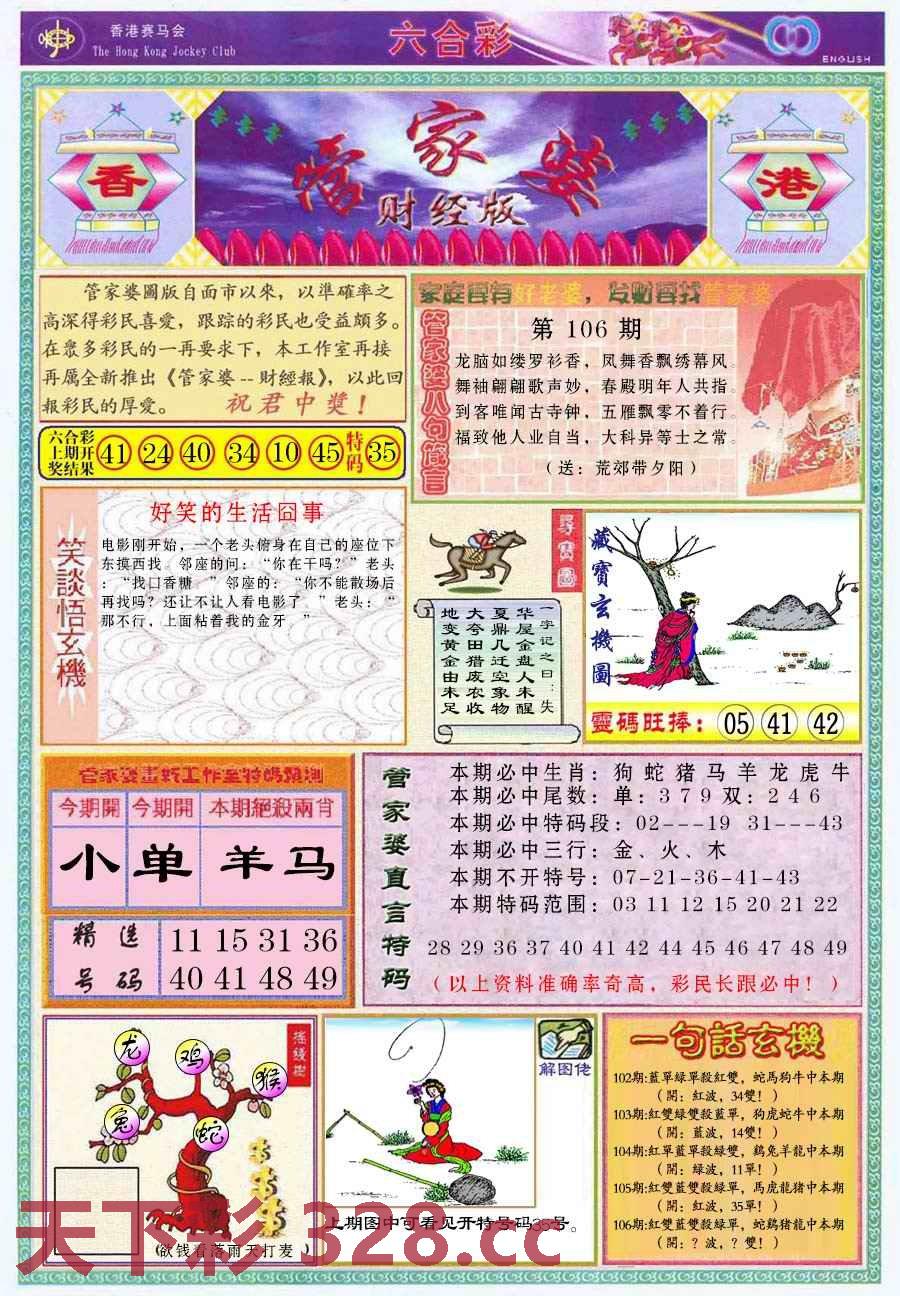 香港赛马会
The Hong Kong Jockey Club
六合彩
ENGLISH
香
管家婆
财经版
港
管家婆圖版自面市以來，以準確率之
高深得彩民喜愛，跟踪的彩民也受益頗多。
在眾多彩民的一再要求下，本工作室再接
再厲全新推出《管家婆--財經報》，以此回
報彩民的厚愛。 祝君中獎！
六合彩
上期开
奖结果
41 24 40 34 10 45 特码 35
好老婆，发财再找管家婆
管家婆八句箴言
第 106 期
龙脑如缕罗衫香，凤舞香飘绣幕风。
舞袖翩翩歌声妙，春殿明年人共指。
到客唯闻古寺钟，五雁飘零不着行。
福致他人业自当，大科异等士之常。
（送：荒郊带夕阳）
笑談悟玄機
好笑的生活囧事
电影刚开始，一个老头俯身在自己的座位下
东摸西找。邻座的问：“你在干吗？”老头
：“找口香糖。”邻座的：“你不能散场后
再找吗？还让不让人看电影了。”老头：“
那不行，上面粘着我的金牙。”
尋寶圖
一字记之曰：失
华屋金盘人未醒
夏鼎几迁空象物
大夸田猎废农收
地变黄金由未足
藏寶玄機圖
靈碼旺捧：05 41 42
今期開 今期開 本期絕殺兩肖
小 单 羊马
精选号码
11 15 31 36
40 41 48 49
管家婆直言特码
本期必中生肖：狗 蛇 猪 马 羊 龙 虎 牛
本期必中尾数：单：3 7 9 双：2 4 6
本期必中特码段：02---19 31---43
本期必中三行：金、火、木
本期不开特号：07-21-36-41-43
本期特码范围：03 11 12 15 20 21 22
28 29 36 37 40 41 42 44 45 46 47 48 49
（以上资料准确率奇高，彩民长跟必中！）
摇錢樹
龙
鸡
猴
兔
蛇
（欲钱看落雨天打麦）
解图佬
上期图中可看见开特号码35号。
一句話玄機
102期:藍單綠單殺紅雙，蛇馬狗牛中本期
（開：紅波，34雙！）
103期:紅雙綠雙殺藍單，狗虎蛇牛中本期
（開：藍波，14雙！）
104期:紅單藍單殺綠雙，鷄兔羊龍中本期
（開：綠波，11單！）
105期:紅雙藍雙殺綠單，馬虎龍猪中本期
（開：紅波，35單！）
106期:紅雙藍雙殺綠單，蛇鷄猪龍中本期
（開：？波，？雙！）
天下彩 328.cc